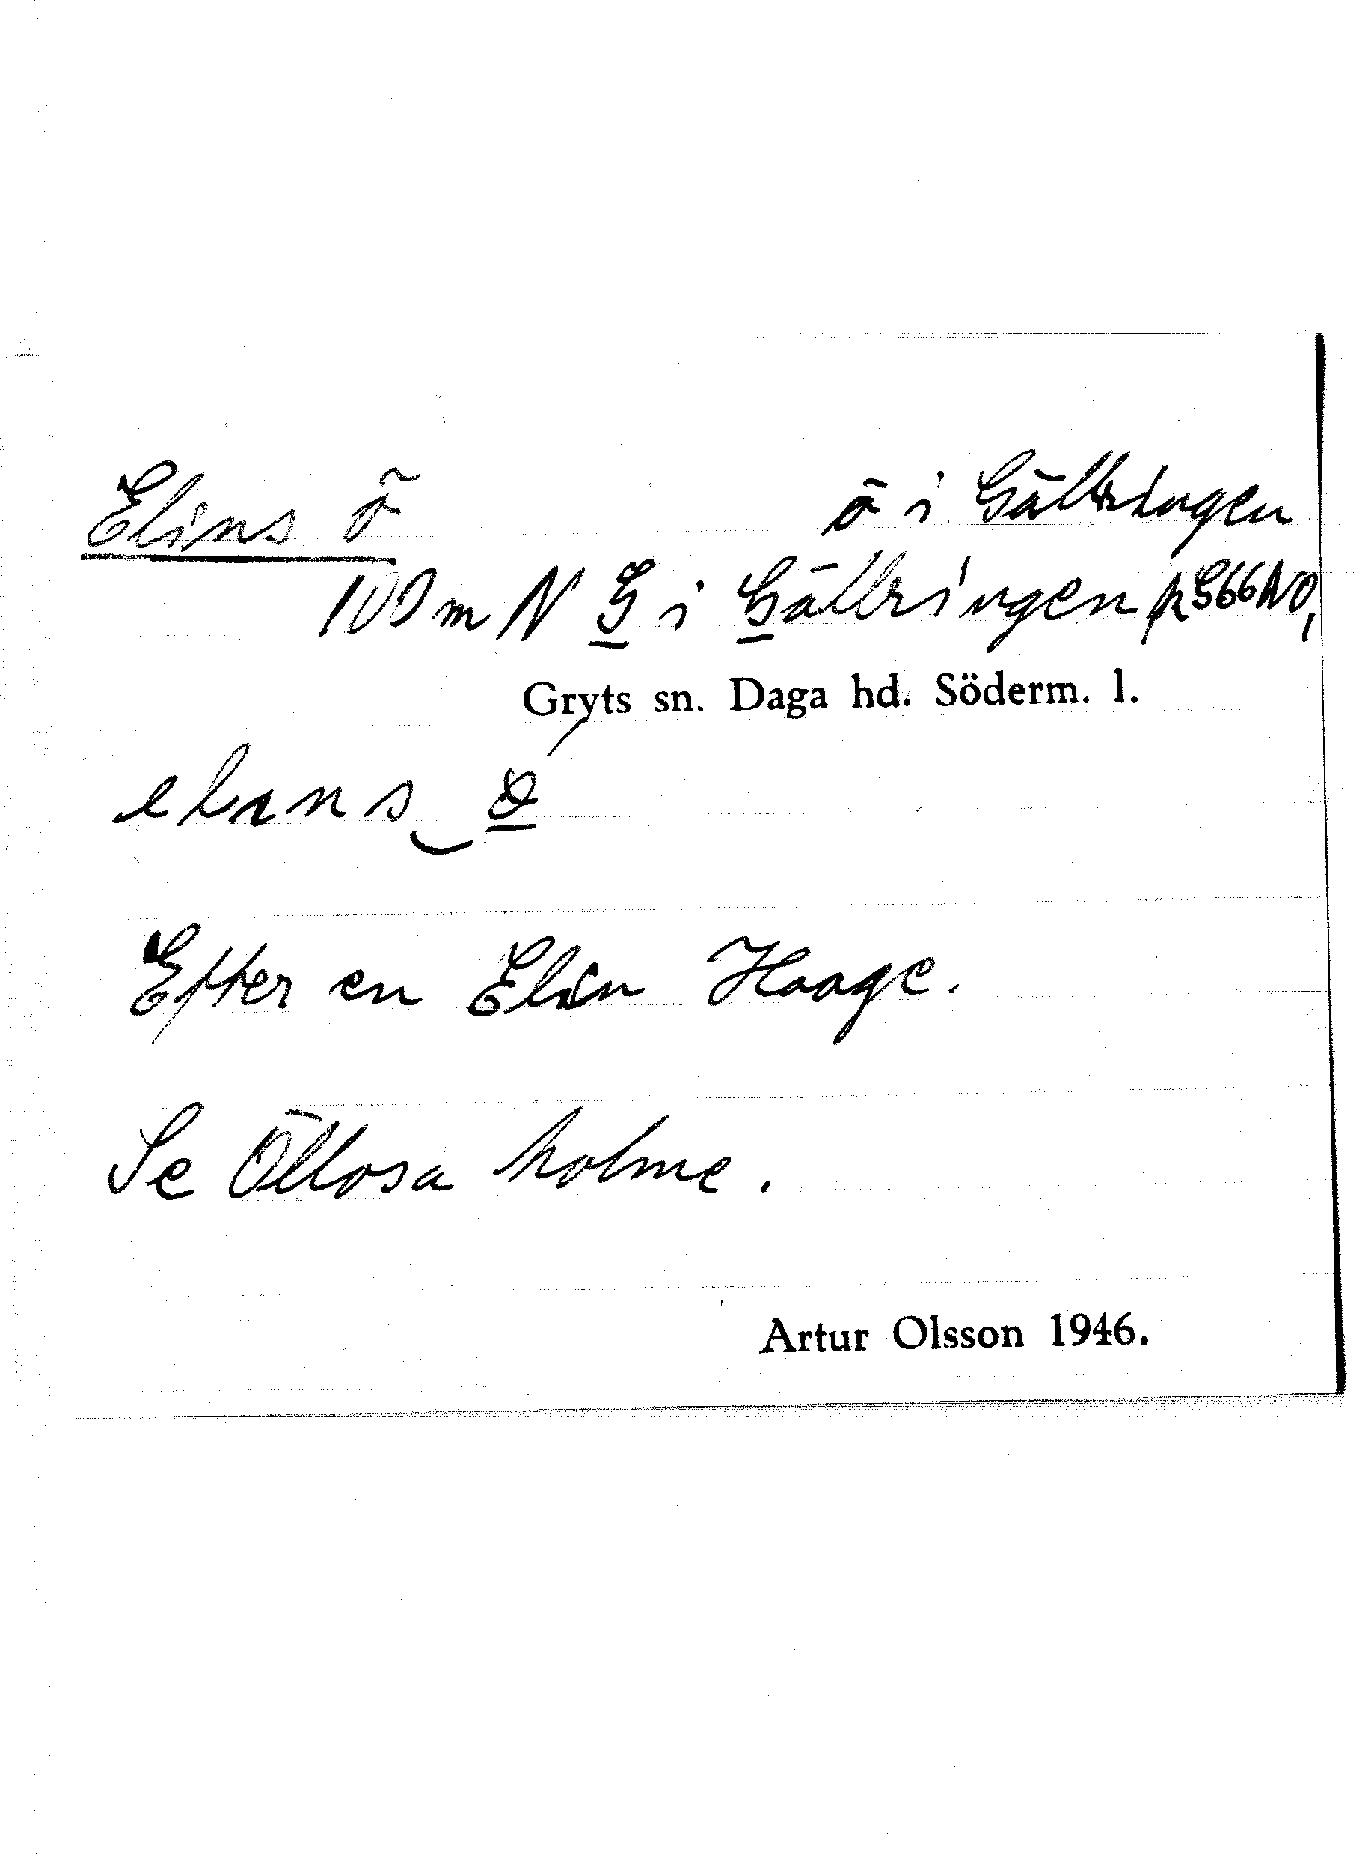 Elins ö ö i Gällringen
100 m N G i Gällringen
Gryts sn. Daga hd. Söderm. l.
elins ö
Efter en Elin Haage.
Se Öllosa holme.
Artur Olsson 1946.